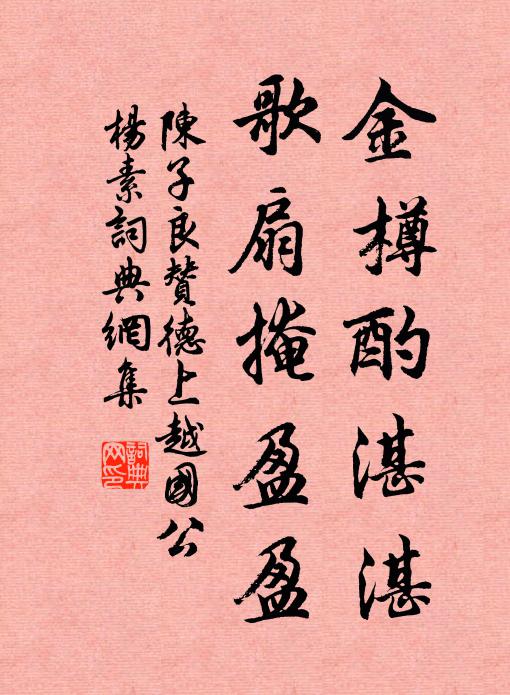 金樽酌湛湛
歌扇掩盈盈
陳子良贊德上越國公
楊素詞典網集
詞典
网印